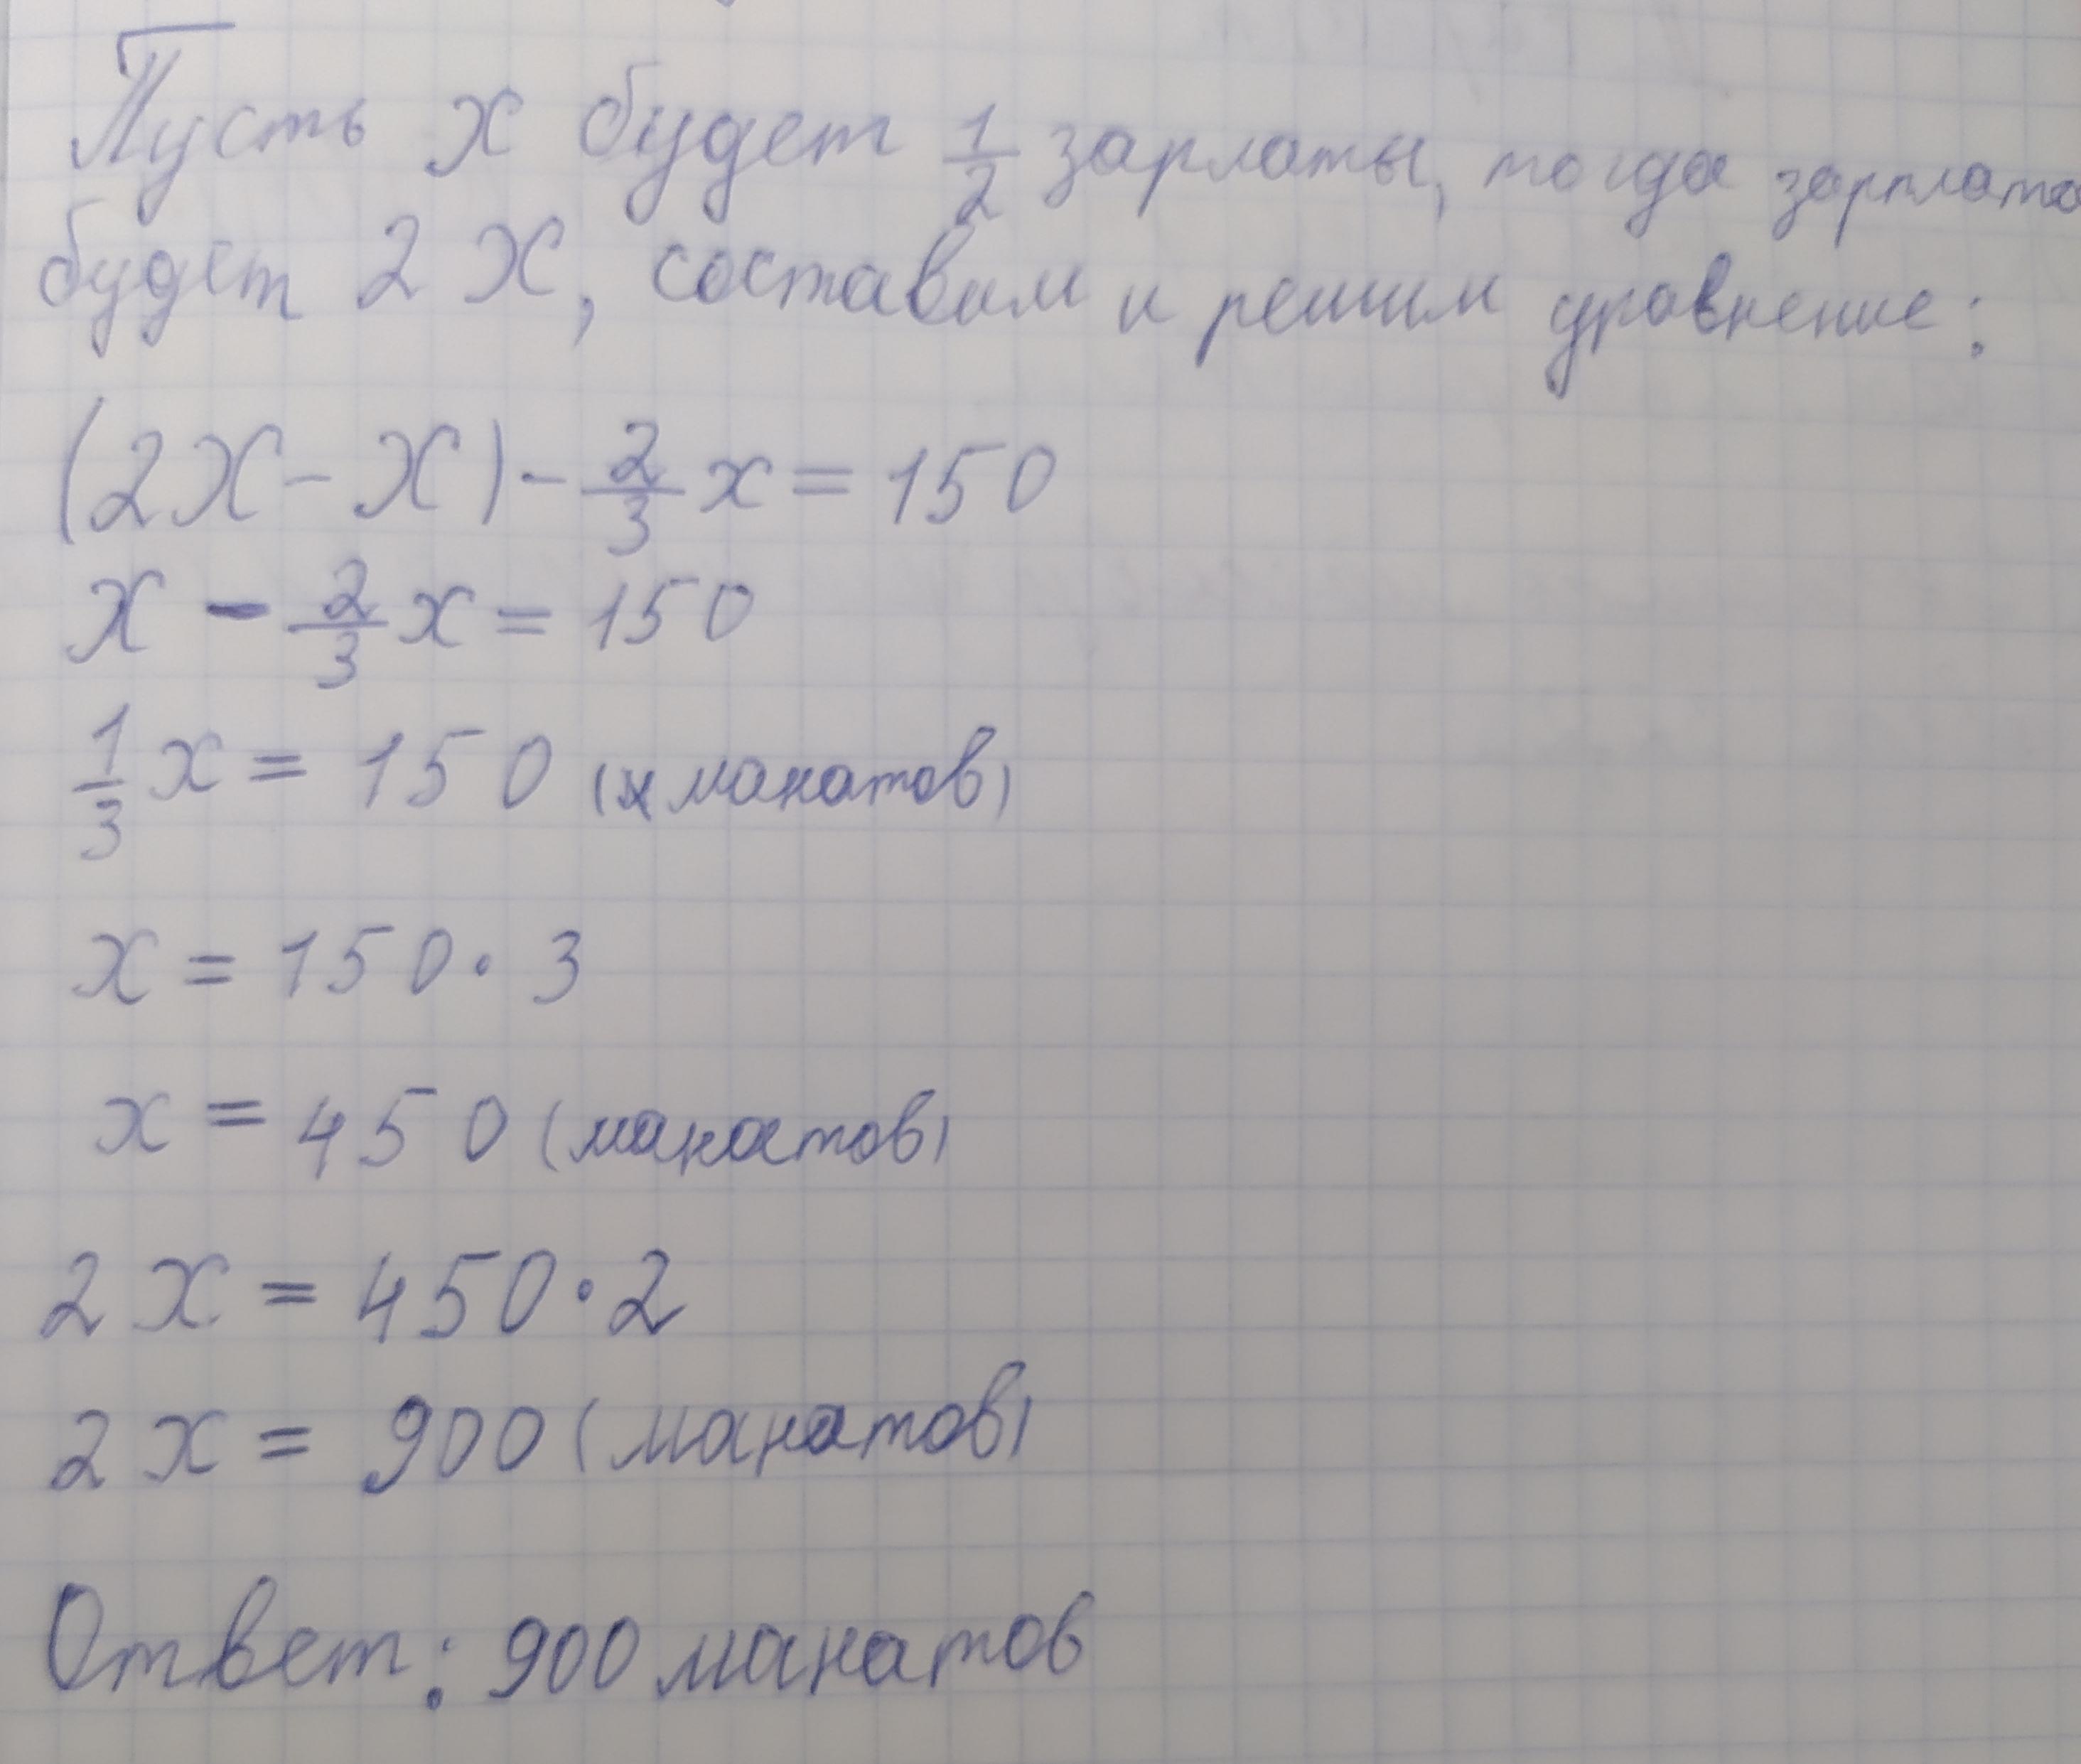 Пусть x будет 1/2 зарплаты, тогда зарплата
будет 2x, составим и решим уравнение:
(2x - x) - 2/3 x = 150
x - 2/3 x = 150
1/3 x = 150 (манатов)
x = 150 · 3
x = 450 (манатов)
2x = 450 · 2
2x = 900 (манатов)
Ответ: 900 манатов